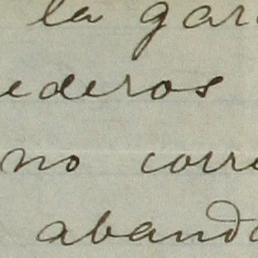 la gar
ederos
no corre
abando